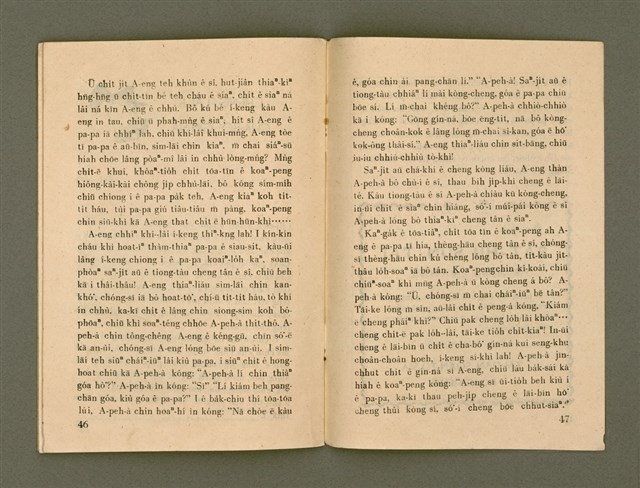 Ū chi̍t ji̍t A-eng teh khùn ê sî, hut-jiân thiaⁿ-kìⁿ
hn̄g-hn̄g ū chi̍t-tīn bé teh cháu ê siaⁿ, chi̍t ê siaⁿ ná
lâi ná kīn A-eng ê chhù. Bô kú bé í-keng kàu A-
eng in tau, chiū ū phah-mn̂g ê siaⁿ, hit sî A-eng ê
pa-pa iā chhíⁿ lah, chiū khí-lâi khui-mn̂g, A-eng tòe
tī pa-pa ê āu-bīn, sim-lāi chin kiaⁿ. m̄ chai siáⁿ-sū
hiah chōe lâng pòaⁿ-mî lâi in chhù lòng-mn̂g? Mn̂g
chi̍t-ē khui, khòaⁿ-tio̍h chi̍t tōa-tīn ê koaⁿ-peng
hiông-kài-kài chông ji̍p chhù-lāi, bô kóng sím-mih
chiū chiong i ê pa-pa pa̍k teh, A-eng kiaⁿ koh tit-
tit háu, túi pa-pa giú tiâu-tiâu m̄ pàng, koaⁿ-peng
chin siū-khì kā A-eng that chi̍t ē hūn-hūn-khì……
A-eng chhíⁿ khí-lâi í-keng thiⁿ-kng lah! I kín-kín
cháu khì hoat-īⁿ thàm-thiaⁿ pa-pa ê siau-sit, káu-ūi
lâng í-keng chiong i ê pa-pa koaiⁿ-lo̍h kaⁿ, soan-
phòaⁿ saⁿ-ji̍t aū ê tiong-tàu cheng tân ê sî, chiū beh
kā i thâi-thâu! A-eng thiaⁿ-liáu sim-lāi chin kan-
khó͘, chóng-sī iā bô hoat-tō͘, chí-ū tit-tit háu, tò khì
in chhù, ka-kī chi̍t ê lâng chin siong-sim koh bô-
phōaⁿ, chiū khì soaⁿ-téng chhōe A-peh-á thit-thô. A-
peh-á chin tông-chêng A-eng ê kéng-gū, chin só͘-ē
kā an-ùi, chóng-sī A-eng lóng bōe siū an-ùi. I sim-
lāi teh siūⁿ cháiⁿ-iūⁿ lâi kiù pa-pa, i siūⁿ chi̍t ê hong-
hoat chiū kā A-peh-á kóng: “A-peh-á lí chin thiàⁿ
góa hōⁿ?” A-peh-á ìn kóng: “Sī” “Lí kiám beh pang-
chān góa, kiù góa ê pa-pa?” I ê ba̍k-chiu thí tōa-tōa
lúi, A-peh-á chin hoaⁿ-hí ìn kóng: “Nā chòe ē kàu
46
ê, góa chin ài pang-chān lí.” “A-peh-á! Saⁿ-ji̍t aū ê
tiong-tàu chhiáⁿ lí mài kòng-cheng, góa ê pa-pa chiū
bōe sí. Lí m̄-chai khéng bô?” A-peh-á chhiò-chhiò
kā i kóng: “Gōng gín-ná, bōe eng-tit, nā bô kòng-
cheng choân-kok ê lâng lóng m̄-chai sî-kan, góa ē hō͘
kok-ông thâi-sí.” A-eng thiaⁿ-liáu chin sit-bāng, chiū
iu-iu chhiù-chhiù tò-khì!
Saⁿ-ji̍t aū chá-khí ê cheng kòng liáu, A-eng thàn
A-peh-á bô chú-ì ê sî, thau bih ji̍p-khì cheng ê lāi-
té. Kàu tiong-tàu ê sî A-peh-á chiàu kū kòng-cheng,
in-ūi chi̍t ê siaⁿ chin hiáng, só͘-í múi-pái kòng ê sî
A-peh-á lóng bô thiaⁿ-kìⁿ cheng tân ê siaⁿ.
Kaⁿ-ga̍k ê tōa-tiâⁿ, chi̍t tōa tīn ê koaⁿ-peng ah A-
eng ê pa-pa tī hia, thèng-hāu cheng tân ê sî, chóng-
sī thèng-hāu chin kú cheng lóng bô tân, tit-kàu ji̍t-
thâu lo̍h-soaⁿ iā bô tân. Koaⁿ-peng chin kî-koài, chiū
chiūⁿ-soaⁿ khì mn̄g A-peh-á ū kòng cheng á bô? A-
peh-á kóng: “Ū, chóng-sī m̄ chai cháiⁿ-iūⁿ bē tân?”
Tāi-ke lóng m̄ sìn, aū-lâi chi̍t ê peng kóng, “Kiám
ê cheng pháiⁿ khì?” Chiū pak cheng lo̍h-lâi khòaⁿ…
cheng chi̍t-ē pak lo̍h-lâi, tāi-ke tio̍h chi̍t-kiaⁿ! In-ūi
cheng ê lāi-bīn ū chi̍t ê cha-bó͘ gín-ná kui seng-khu
choân-choân hoeh, í-keng sí-khì lah! A-peh-á jīn-
chhut chi̍t ê gín-ná sī A-eng, chiū lâu ba̍k-sái kā
hiah ê koaⁿ-peng kóng: “A-eng sī ūi-tio̍h beh kiù i
ê pa-pa, ka-kī thau peh-ji̍p cheng ê lāi-bīn hō͘
cheng thûi kòng sí, só͘-í cheng bōe chhut-siaⁿ.”
47